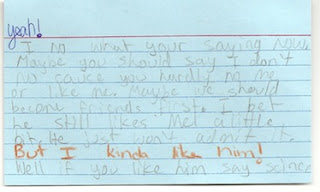 yeah!
I no what your saying now.
Maybe you should say I don't
no cause you hardly no me
or like me. Maybe we should
become friends first. I bet
he still likes me! a little
bit. He just won't admit it.
But I kinda like him!
Well if you like him say scince